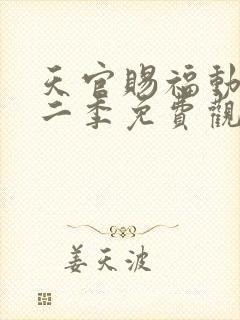 天官賜福動
二季免費觀
姜天波